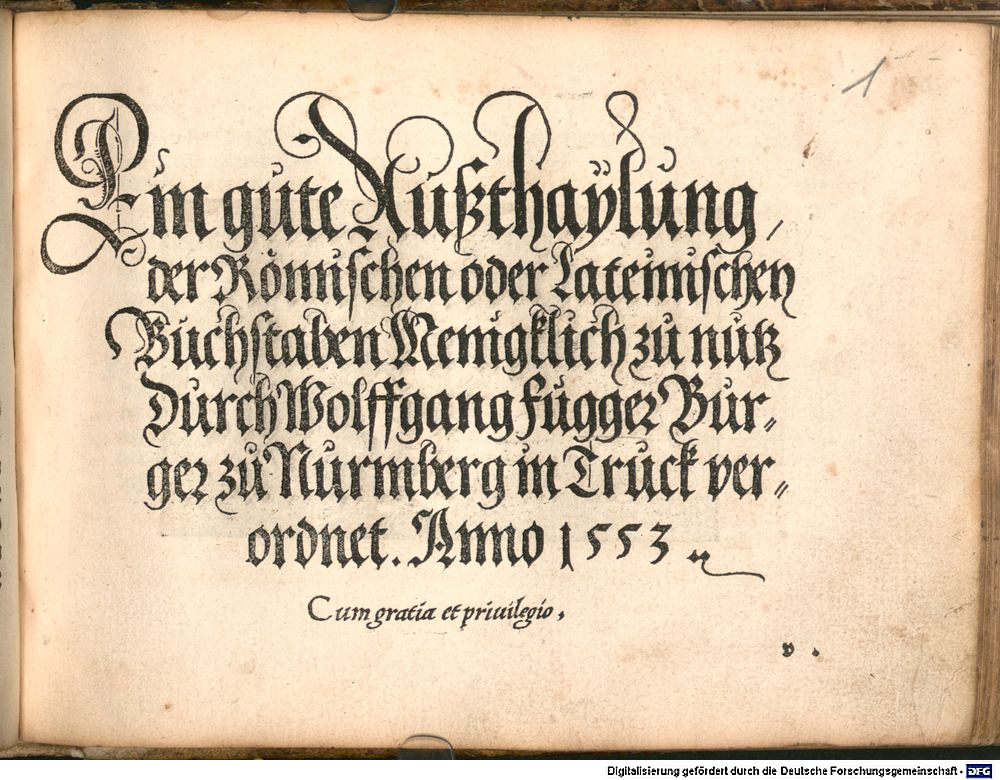 1
Ein gute Außthaÿlung,
der Römischen oder Lateinischen
Bůchstaben Menigklich zů nutz
Durch Wolffgang Fugger Bur⸗
ger zů Nurmberg in Truck ver⸗
ordnet. Anno 1553
Cum gratia et priuilegio.
v .
Digitalisierung gefördert durch die Deutsche Forschungsgemeinschaft - DFG